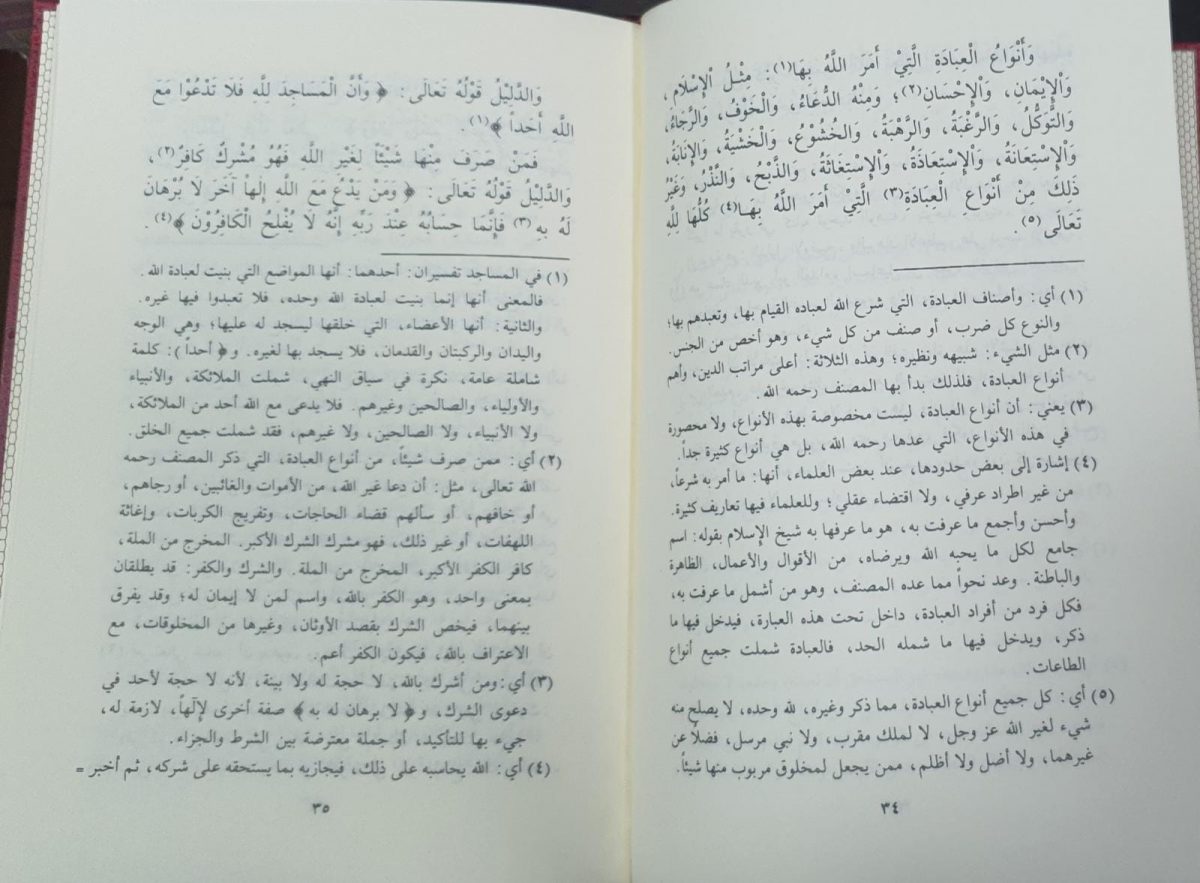 وَأَنْوَاعُ الْعِبَادَةِ الَّتِيْ أَمَرَ اللَّهُ بِهَا(١): مِثْلُ الْإِسْلَامِ،
وَالْإِيْمَانِ، وَالْإِحْسَانِ(٢)؛ وَمِنْهُ الدُّعَاءُ، وَالْخَوْفُ، وَالرَّجَاءُ،
وَالتَّوَكُّلُ، وَالرَّغْبَةُ، وَالرَّهْبَةُ، وَالخُشُوْعُ، وَالْخَشْيَةُ، وَالإِنَابَةُ،
وَالْإِسْتِعَانَةُ، وَالْإِسْتِعَاذَةُ، وَالْإِسْتِغَاثَةُ، وَالذَّبْحُ، وَالنَّذْرُ، وَغَيْرُ
ذَلِكَ مِنْ أَنْوَاعِ الْعِبَادَةِ(٣) الَّتِيْ أَمَرَ اللَّهُ بِهَا(٤) كُلُّهَا لِلَّهِ
تَعَالَى(٥).
(١) أي: وأصناف العبادة، التي شرع الله لعباده القيام بها، وتعبدهم بها؛
والنوع كل ضرب، أو صنف من كل شيء، وهو أخص من الجنس.
(٢) مثل الشيء: شبيهه ونظيره؛ وهذه الثلاثة: أعلى مراتب الدين، وأهم
أنواع العبادة، فلذلك بدأ بها المصنف رحمه الله.
(٣) يعني: أن أنواع العبادة، ليست مخصوصة بهذه الأنواع، ولا محصورة
في هذه الأنواع، التي عدها رحمه الله، بل هي أنواع كثيرة جداً.
(٤) إشارة إلى بعض حدودها، عند بعض العلماء، أنها: ما أمر به شرعاً،
من غير اطراد عرفي، ولا اقتضاء عقلي؛ وللعلماء فيها تعاريف كثيرة.
وأحسن وأجمع ما عرفت به، هو ما عرفها به شيخ الإسلام بقوله: اسم
جامع لكل ما يحبه الله ويرضاه، من الأقوال والأعمال، الظاهرة
والباطنة. وعد نحواً مما عده المصنف، وهو من أشمل ما عرفت به،
فكل فرد من أفراد العبادة، داخل تحت هذه العبارة، فيدخل فيها ما
ذكر، ويدخل فيها ما شمله الحد، فالعبادة شملت جميع أنواع
الطاعات.
(٥) أي: كل جميع أنواع العبادة، مما ذكر وغيره، لله وحده، لا يصلح منه
شيء لغير الله عز وجل، لا لملك مقرب، ولا نبي مرسل، فضلاً عن
غيرهما، ولا أضل ولا أظلم، ممن يجعل لمخلوق مربوب منها شيئاً.
٣٤
وَالدَّلِيْلُ قَوْلُهُ تَعَالَى: ﴿ وَأَنَّ الْمَسَاجِدَ لِلَّهِ فَلَا تَدْعُوْا مَعَ
اللَّهِ أَحَداً ﴾(١).
فَمَنْ صَرَفَ مِنْهَا شَيْئًا لِغَيْرِ اللَّهِ فَهُوَ مُشْرِكٌ كَافِرٌ(٢)،
وَالدَّلِيْلُ قَوْلُهُ تَعَالَى: ﴿ وَمَنْ يَدْعُ مَعَ اللَّهِ إِلٰهاً آخَرَ لَا بُرْهَانَ
لَهُ بِهِ (٣) فَإِنَّمَا حِسَابُهُ عِنْدَ رَبِّهِ إِنَّهُ لَا يُفْلِحُ الْكَافِرُوْنَ ﴾(٤).
(١) في المساجد تفسيران: أحدهما: أنها المواضع التي بنيت لعبادة الله.
فالمعنى أنها إنما بنيت لعبادة الله وحده، فلا تعبدوا فيها غيره.
والثانية: أنها الأعضاء، التي خلقها ليسجد له عليها؛ وهي الوجه
واليدان والركبتان والقدمان، فلا يسجد بها لغيره. و﴿ أحداً ﴾: كلمة
شاملة عامة، نكرة في سياق النهي، شملت الملائكة، والأنبياء
والأولياء، والصالحين وغيرهم. فلا يدعى مع الله أحد من الملائكة،
ولا الأنبياء، ولا الصالحين، ولا غيرهم، فقد شملت جميع الخلق.
(٢) أي: ممن صرف شيئاً، من أنواع العبادة، التي ذكر المصنف رحمه
الله تعالى، مثل: أن دعا غير الله، من الأموات والغائبين، أو رجاهم،
أو خافهم، أو سألهم قضاء الحاجات، وتفريج الكربات، وإغاثة
اللهفات، أو غير ذلك، فهو مشرك الشرك الأكبر. المخرج من الملة،
كافر الكفر الأكبر، المخرج من الملة. والشرك والكفر: قد يطلقان
بمعنى واحد، وهو الكفر بالله، واسم لمن لا إيمان له؛ وقد يفرق
بينهما، فيخص الشرك بقصد الأوثان، وغيرها من المخلوقات، مع
الاعتراف بالله، فيكون الكفر أعم.
(٣) أي: ومن أشرك بالله، لا حجة له ولا بينة، لأنه لا حجة لأحد في
دعوى الشرك، و﴿ لا برهان له به ﴾ صفة أخرى لإلهاً، لازمة له،
جيء بها للتأكيد، أو جملة معترضة بين الشرط والجزاء.
(٤) أي: الله يحاسبه على ذلك، فيجازيه بما يستحقه على شركه، ثم أخبر =
٣٥